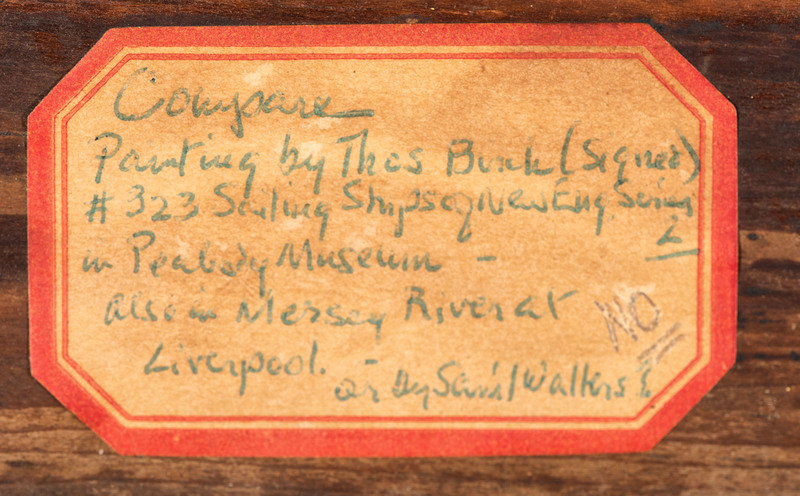 Compare
Painting by Thos Bink (Signed)
# 323 Sailing Ships of New Eng Series
2
in Peabody Museum -
also in Mersey River at
Liverpool. -
NO
or by Sam'l Walters